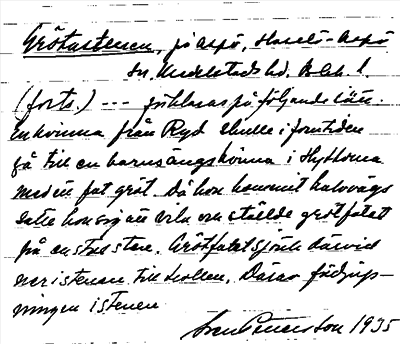 Grötastenen, på Aspö, Hasslö-Aspö
sn, Medelstads hd, Blek. l.
(forts.) --- förklaras på följande sätt.
En kvinna från Ryd skulle i forntiden
gå till en barnsängskvinna i Hyttorna
med ett fat gröt. Då hon kommit halvvägs
satte hon sig att vila och ställde grötfatet
på en stor sten. Grötfatet sjönk därvid
ner i stenen till trollen. Därav fördjup-
ningen i stenen
Sven Peterson 1935